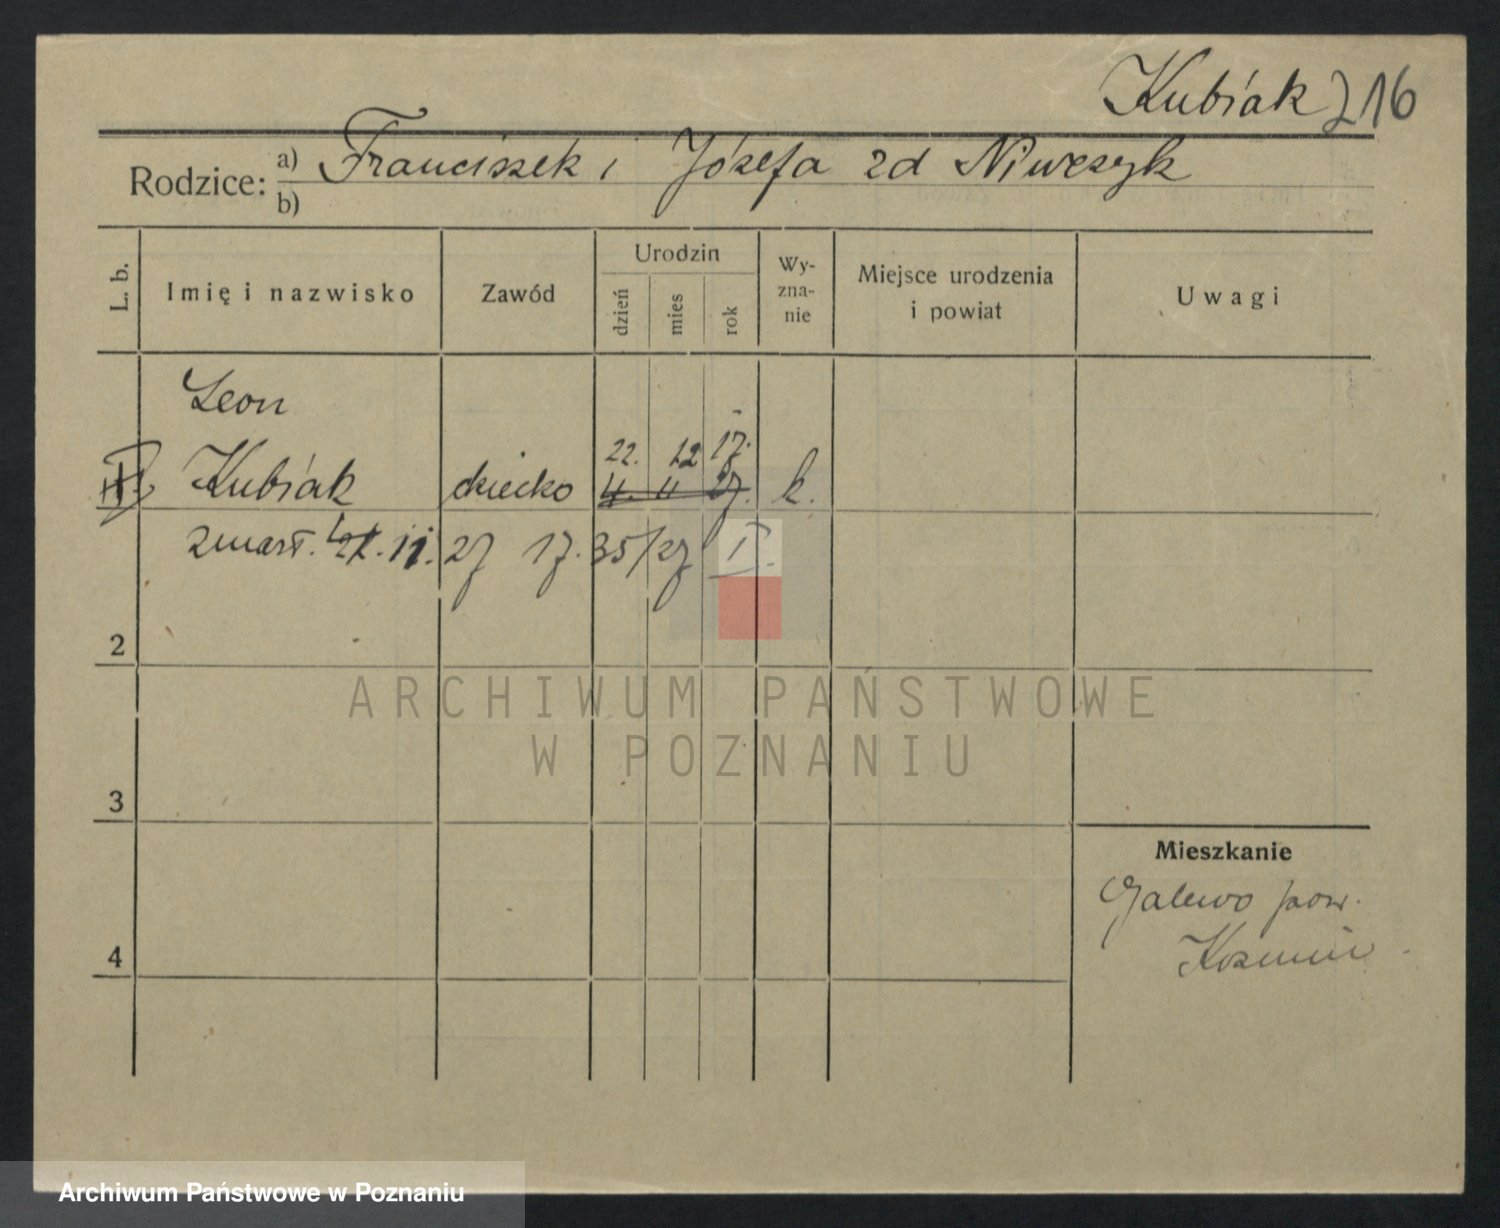 Kubiak 216
Rodzice: a) Franciszek i Józefa zd Niwczyk
b)
L. b. Imię i nazwisko Zawód Urodzin dzień mies rok Wy-zna-nie Miejsce urodzenia i powiat Uwagi
Leon
22. 12 17.
Kubiak dziecko 4. 11 27. k.
zmarł. 11. 27 17. 35/27 I.
2
ARCHIWUM PAŃSTWOWE
W POZNANIU
3
Mieszkanie
Galewo pow.
Kozmin
4
Archiwum Państwowe w Poznaniu